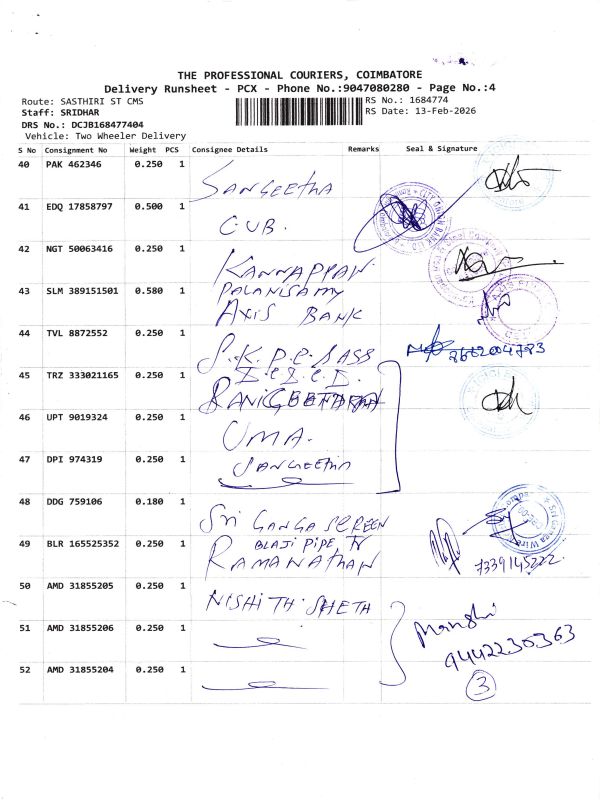 THE PROFESSIONAL COURIERS, COIMBATORE
Delivery Runsheet - PCX - Phone No.:9047080280 - Page No.:4
Route: SASTHIRI ST CMS RS No.: 1684774
Staff: SRIDHAR RS Date: 13-Feb-2026
DRS No.: DCJB168477404
Vehicle: Two Wheeler Delivery
S No Consignment No Weight PCS Consignee Details Remarks Seal & Signature
40 PAK 462346 0.250 1 SANGEETHA
41 EDQ 17858797 0.500 1 CUB.
42 NGT 50063416 0.250 1 KANNAPPAN
43 SLM 389151501 0.580 1 PALANISAMY
AXIS BANK
44 TVL 8872552 0.250 1 S.K.P.C SASS
45 TRZ 333021165 0.250 1
46 UPT 9019324 0.250 1 UMA.
47 DPI 974319 0.250 1 SANGEETHA
48 DDG 759106 0.180 1 SRI GANGA SCREEN
49 BLR 165525352 0.250 1 BLAJI PIPE TR
RAMANATHAN 7339145222
50 AMD 31855205 0.250 1 NISHITH SHETH
51 AMD 31855206 0.250 1
52 AMD 31855204 0.250 1
9442230363
3